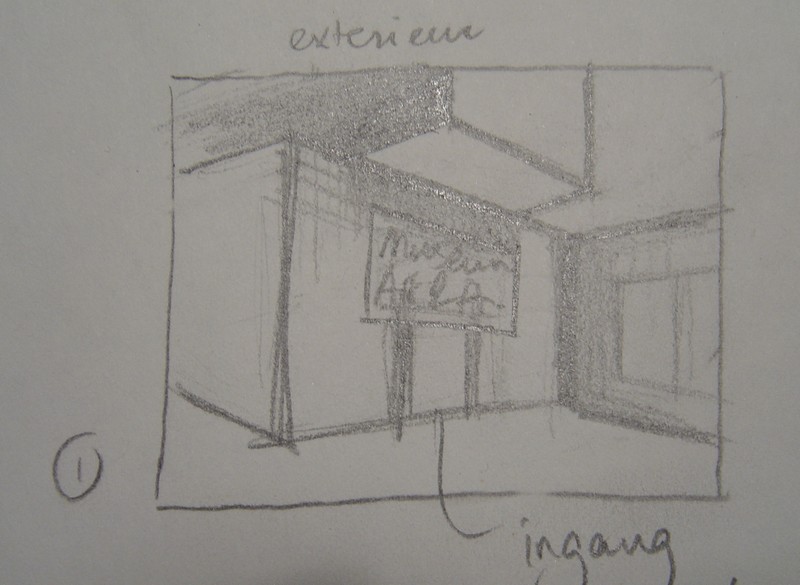 exterieur
Museum
A & A.
1
ingang